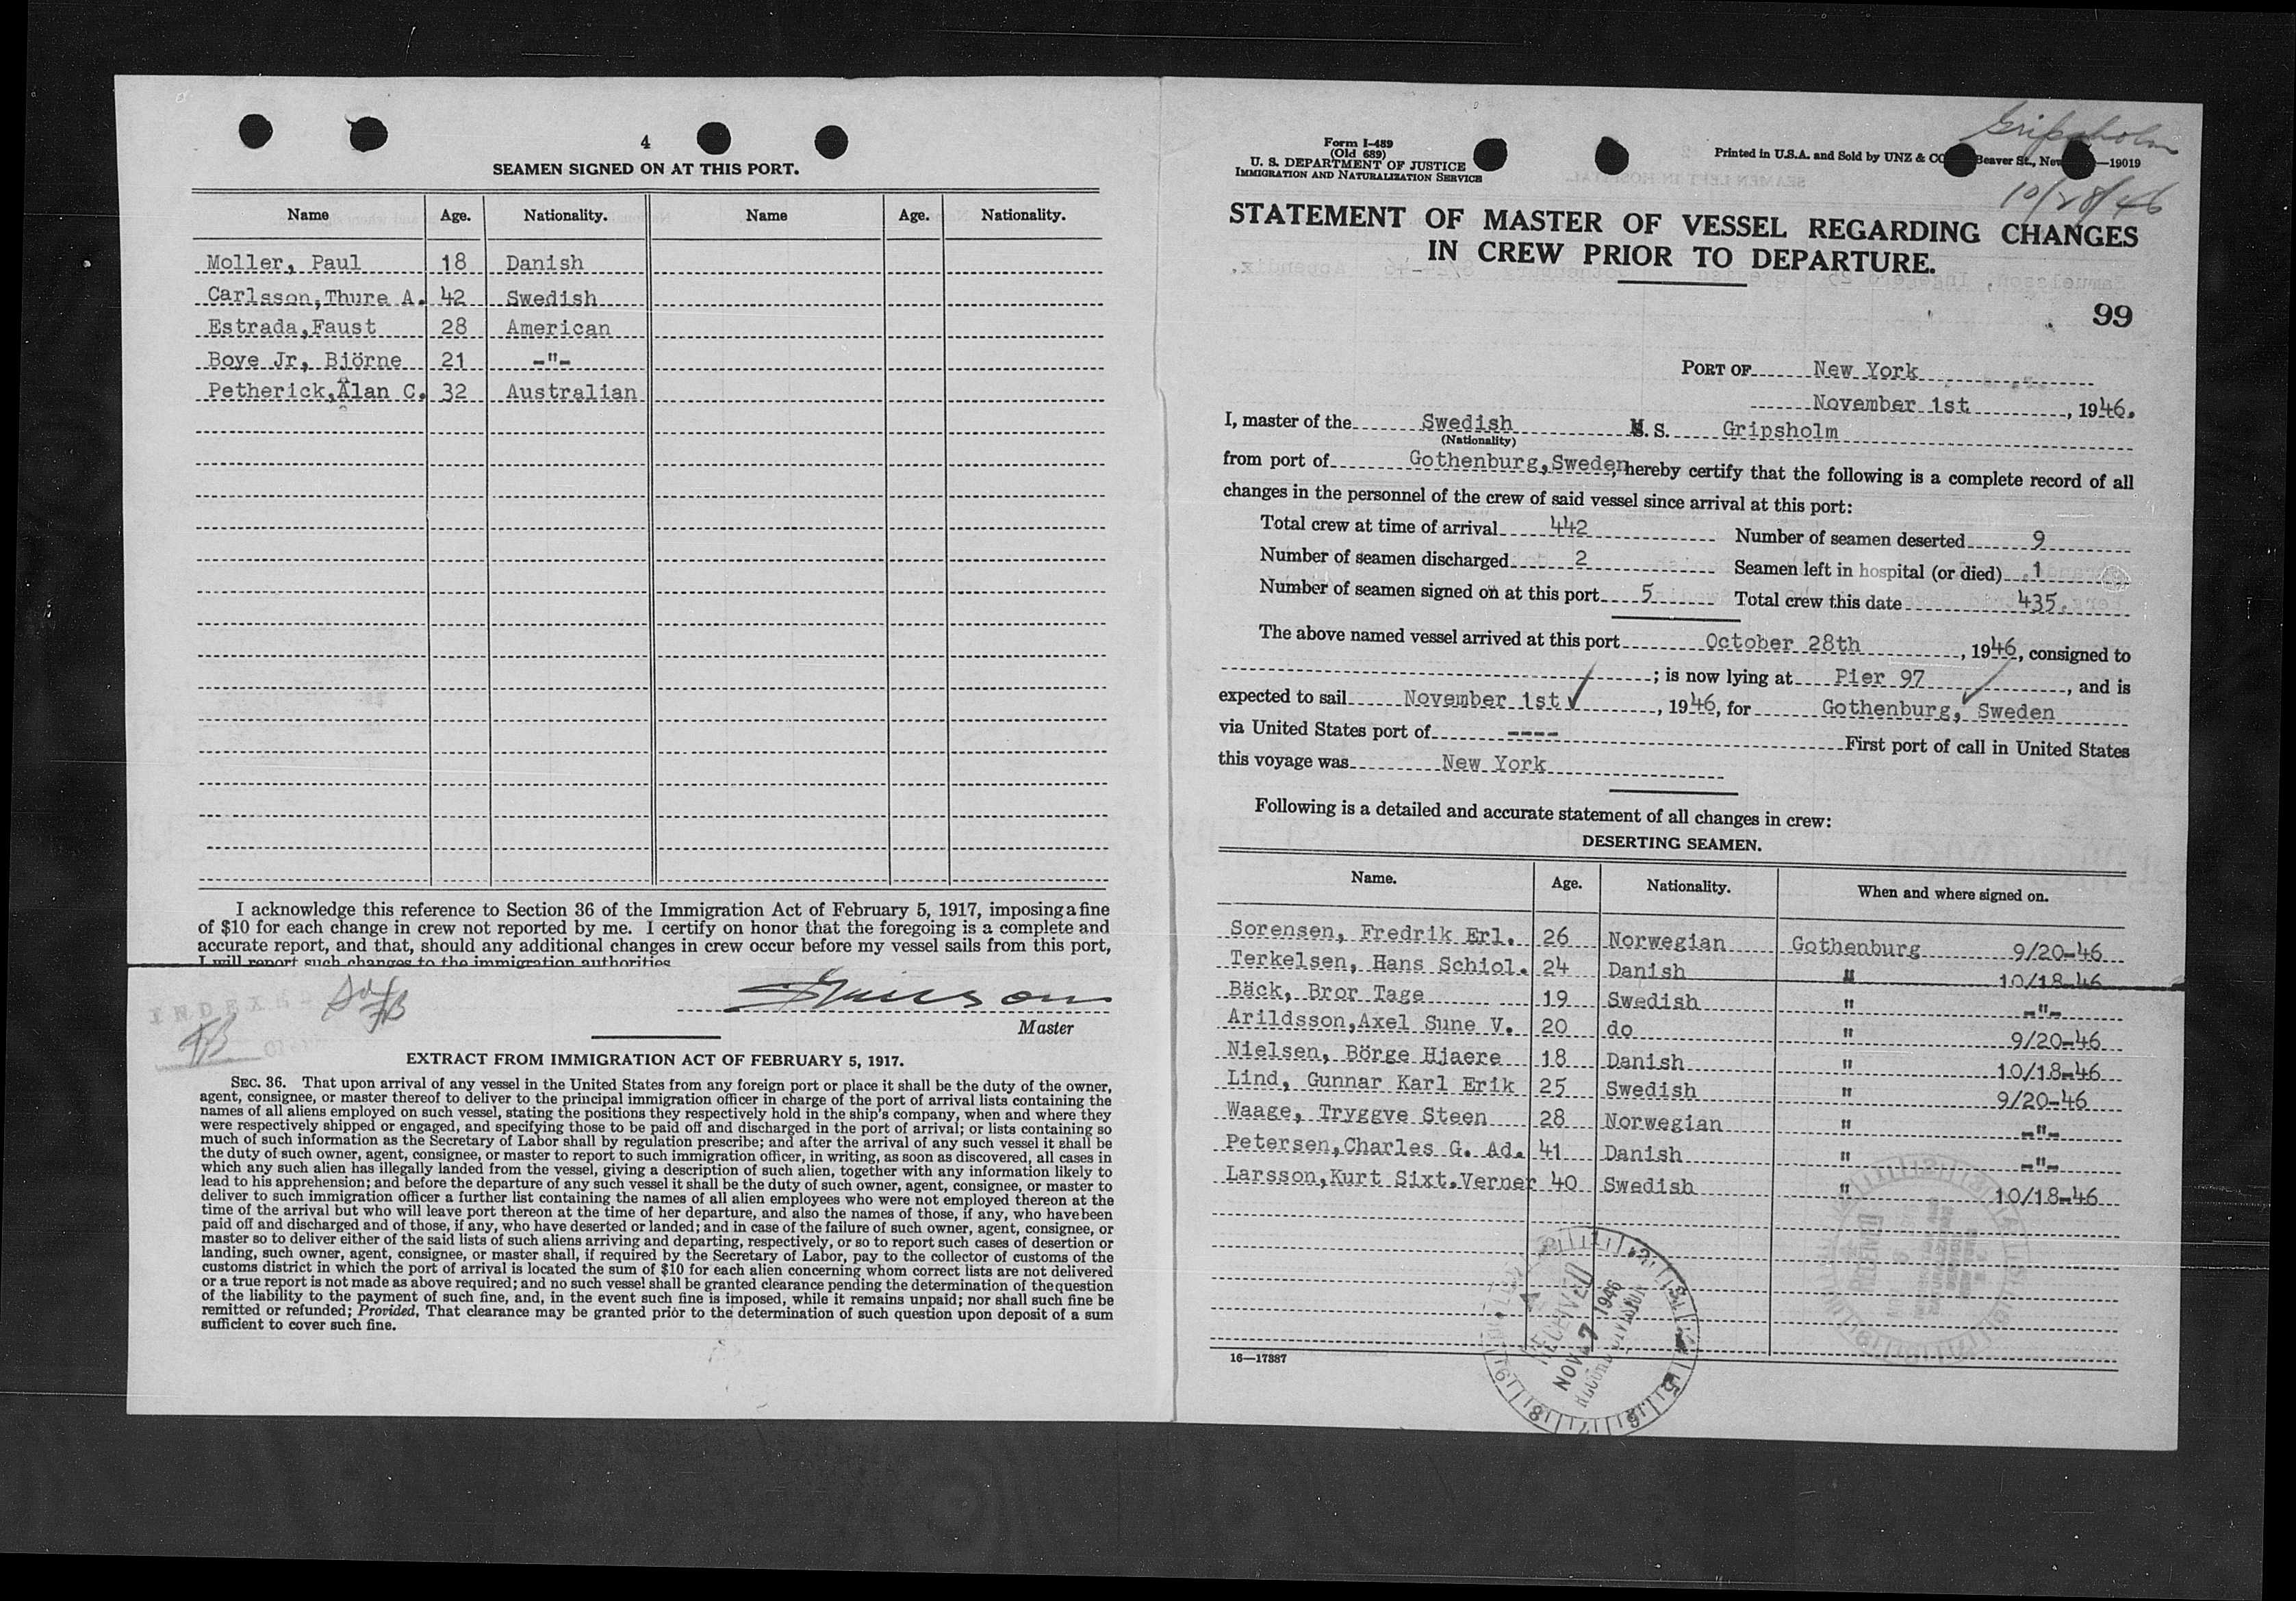 4
SEAMEN SIGNED ON AT THIS PORT.
Name Age. Nationality. Name Age. Nationality.
Moller, Paul 18 Danish
Carlsson,Thure A. 42 Swedish
Estrada,Faust 28 American
Boye Jr, Björne 21 -"-
Petherick,Alan C. 32 Australian
I acknowledge this reference to Section 36 of the Immigration Act of February 5, 1917, imposing a fine
of $10 for each change in crew not reported by me. I certify on honor that the foregoing is a complete and
accurate report, and that, should any additional changes in crew occur before my vessel sails from this port,
I will report such changes to the immigration authorities
INDEXED
Master
EXTRACT FROM IMMIGRATION ACT OF FEBRUARY 5, 1917.
SEC. 36. That upon arrival of any vessel in the United States from any foreign port or place it shall be the duty of the owner,
agent, consignee, or master thereof to deliver to the principal immigration officer in charge of the port of arrival lists containing the
names of all aliens employed on such vessel, stating the positions they respectively hold in the ship's company, when and where they
were respectively shipped or engaged, and specifying those to be paid off and discharged in the port of arrival; or lists containing so
much of such information as the Secretary of Labor shall by regulation prescribe; and after the arrival of any such vessel it shall be
the duty of such owner, agent, consignee, or master to report to such immigration officer, in writing, as soon as discovered, all cases in
which any such alien has illegally landed from the vessel, giving a description of such alien, together with any information likely to
lead to his apprehension; and before the departure of any such vessel it shall be the duty of such owner, agent, consignee, or master to
deliver to such immigration officer a further list containing the names of all alien employees who were not employed thereon at the
time of the arrival but who will leave port thereon at the time of her departure, and also the names of those, if any, who have been
paid off and discharged and of those, if any, who have deserted or landed; and in case of the failure of such owner, agent, consignee, or
master so to deliver either of the said lists of such aliens arriving and departing, respectively, or so to report such cases of desertion or
landing, such owner, agent, consignee, or master shall, if required by the Secretary of Labor, pay to the collector of customs of the
customs district in which the port of arrival is located the sum of $10 for each alien concerning whom correct lists are not delivered
or a true report is not made as above required; and no such vessel shall be granted clearance pending the determination of the question
of the liability to the payment of such fine, and, in the event such fine is imposed, while it remains unpaid; nor shall such fine be
remitted or refunded; Provided, That clearance may be granted prior to the determination of such question upon deposit of a sum
sufficient to cover such fine.
Form I-489
(Old 689)
U. S. DEPARTMENT OF JUSTICE
IMMIGRATION AND NATURALIZATION SERVICE
Printed in U.S.A. and Sold by UNZ & CO Beaver St., New —19019
Gripsholm
10/28/46
STATEMENT OF MASTER OF VESSEL REGARDING CHANGES
IN CREW PRIOR TO DEPARTURE.
99
PORT OF New York
November 1st, 1946.
I, master of the Swedish M. S. Gripsholm
(Nationality)
from port of Gothenburg,Sweden, hereby certify that the following is a complete record of all
changes in the personnel of the crew of said vessel since arrival at this port:
Total crew at time of arrival 442 Number of seamen deserted 9
Number of seamen discharged 2 Seamen left in hospital (or died) 1
Number of seamen signed on at this port 5 Total crew this date 435.
The above named vessel arrived at this port October 28th, 1946, consigned to
; is now lying at Pier 97, and is
expected to sail November 1st, 1946, for Gothenburg, Sweden
via United States port of ---- First port of call in United States
this voyage was New York
Following is a detailed and accurate statement of all changes in crew:
DESERTING SEAMEN.
Name. Age. Nationality. When and where signed on.
Sorensen, Fredrik Erl. 26 Norwegian Gothenburg 9/20-46
Terkelsen, Hans Schiol. 24 Danish " 10/18-46
Bäck, Bror Tage 19 Swedish " -"-
Arildsson,Axel Sune V. 20 do " 9/20-46
Nielsen, Börge Hjaere 18 Danish " 10/18-46
Lind, Gunnar Karl Erik 25 Swedish " 9/20-46
Waage, Tryggve Steen 28 Norwegian " -"-
Petersen,Charles G. Ad. 41 Danish " -"-
Larsson,Kurt Sixt.Verner 40 Swedish " 10/18-46
RECEIVED
NOV 7 1946
RECORD DIVISION
16—17387